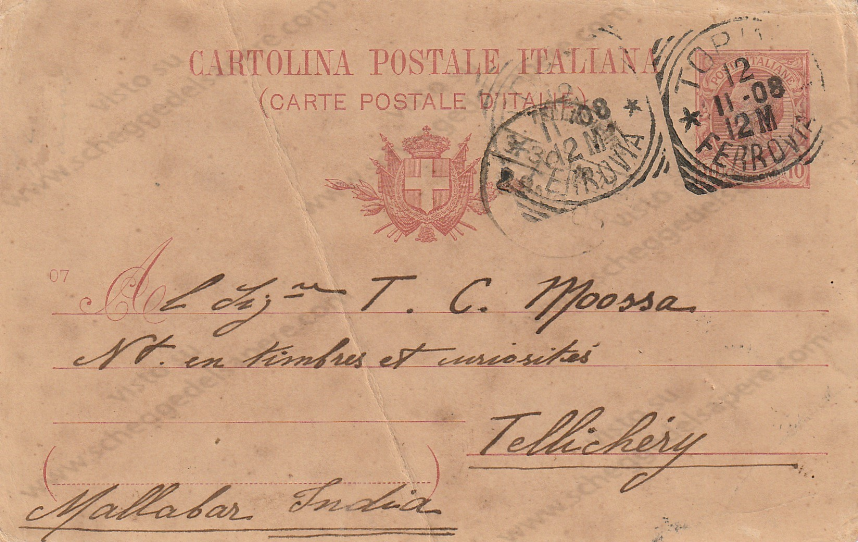 CARTOLINA POSTALE ITALIANA
(CARTE POSTALE D'ITALIE)
POSTE ITALIANE
10
TORINO
12
11-08
12M
FERROVIA
11-08
12M
FERROVIA
07
Al Sigre T. C. Moossa
Nt. en timbres et curiosités
Tellichéry
Mallabar India
visto su
www.scheggedelsapere.com